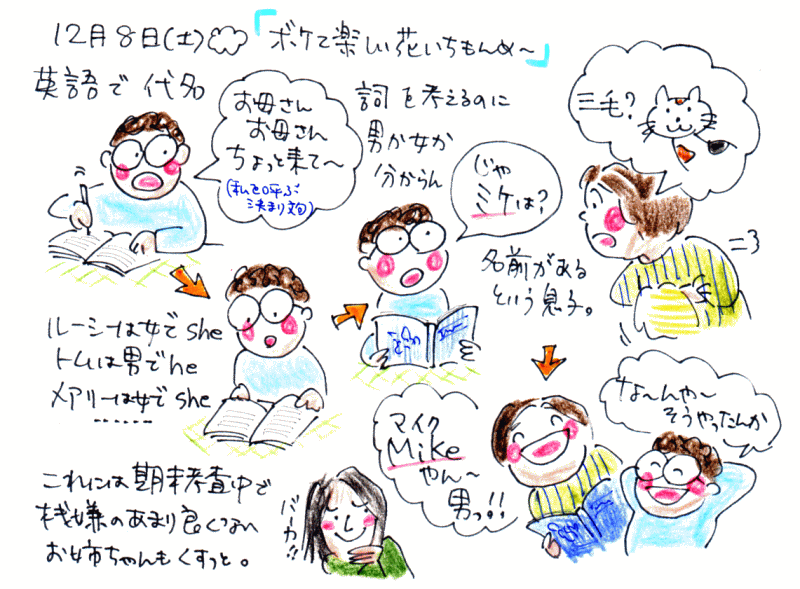 12月8日(土)「ボケて楽しい花いちもんめ~」
英語で代名
詞を考えるのに
男か女か
分からん
名前がある
という息子。
お母さん
お母さん
ちょっと来て~
(私を呼ぶ
決まり文句)
ルーシーは女でshe
トムは男でhe
メアリーは女でshe
-------
じゃ
ミケは?
三毛?
マイク
Mike
やん~
男っ!!
な~んや~
そうやったんか
これには期末考査中で
機嫌のあまり良くない
お姉ちゃんもくすっと。
バーカ!!